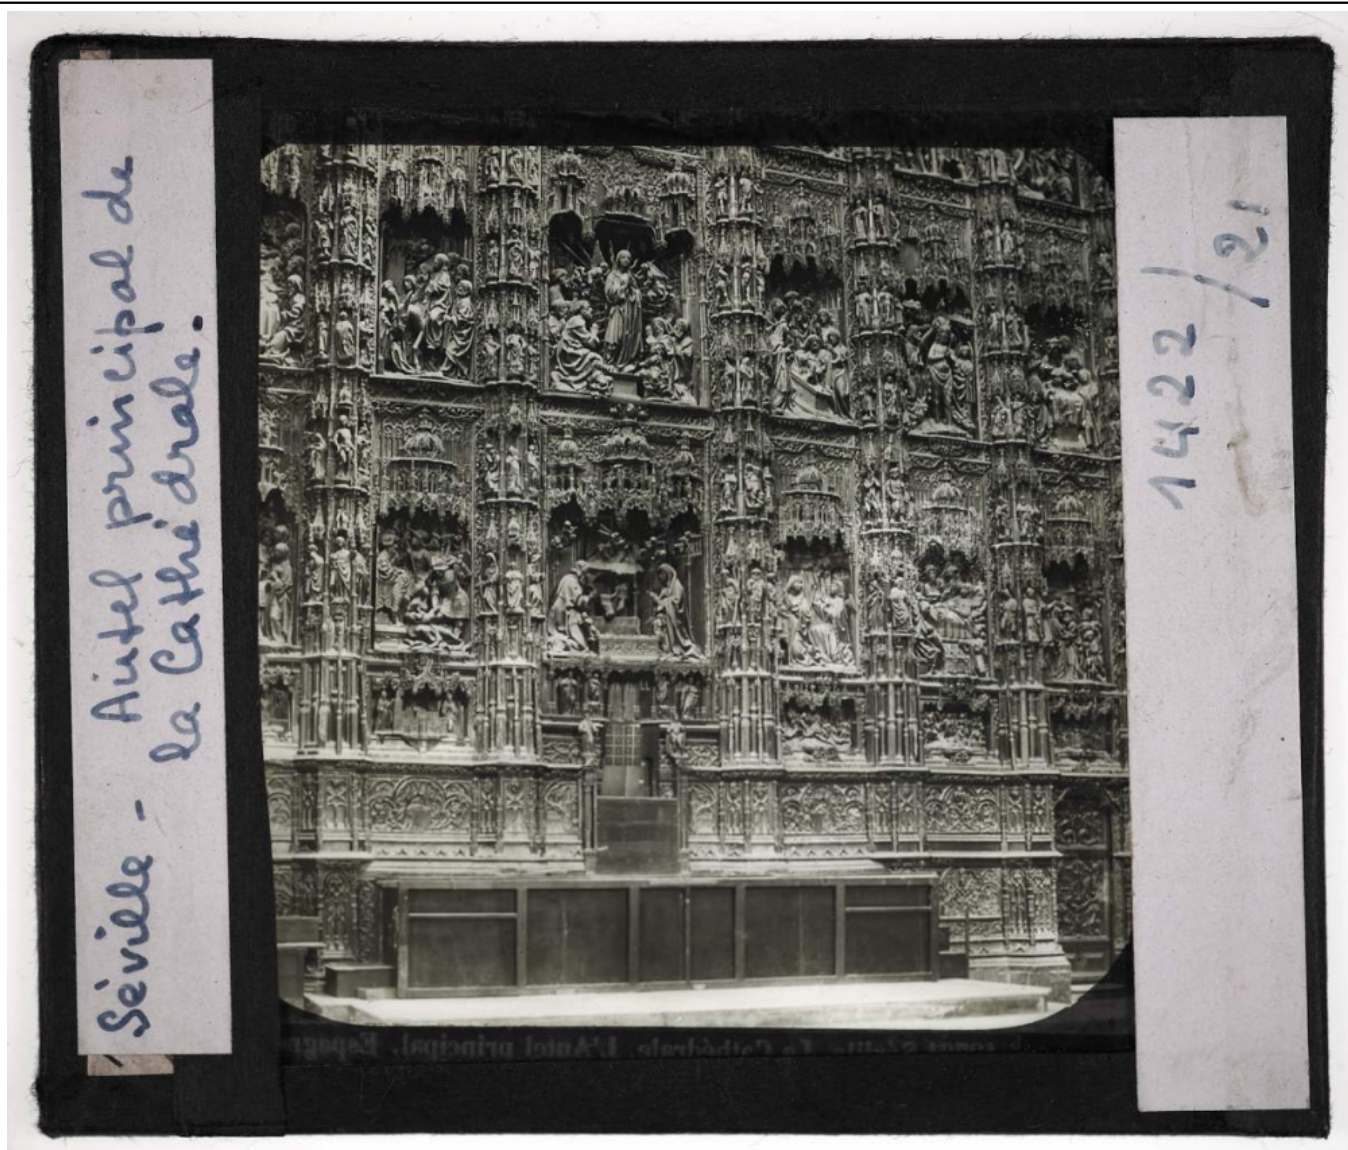 Séville - Autel principal de
la Cathédrale.
1422/21
La Cathédrale. L'Autel principal. Espagne